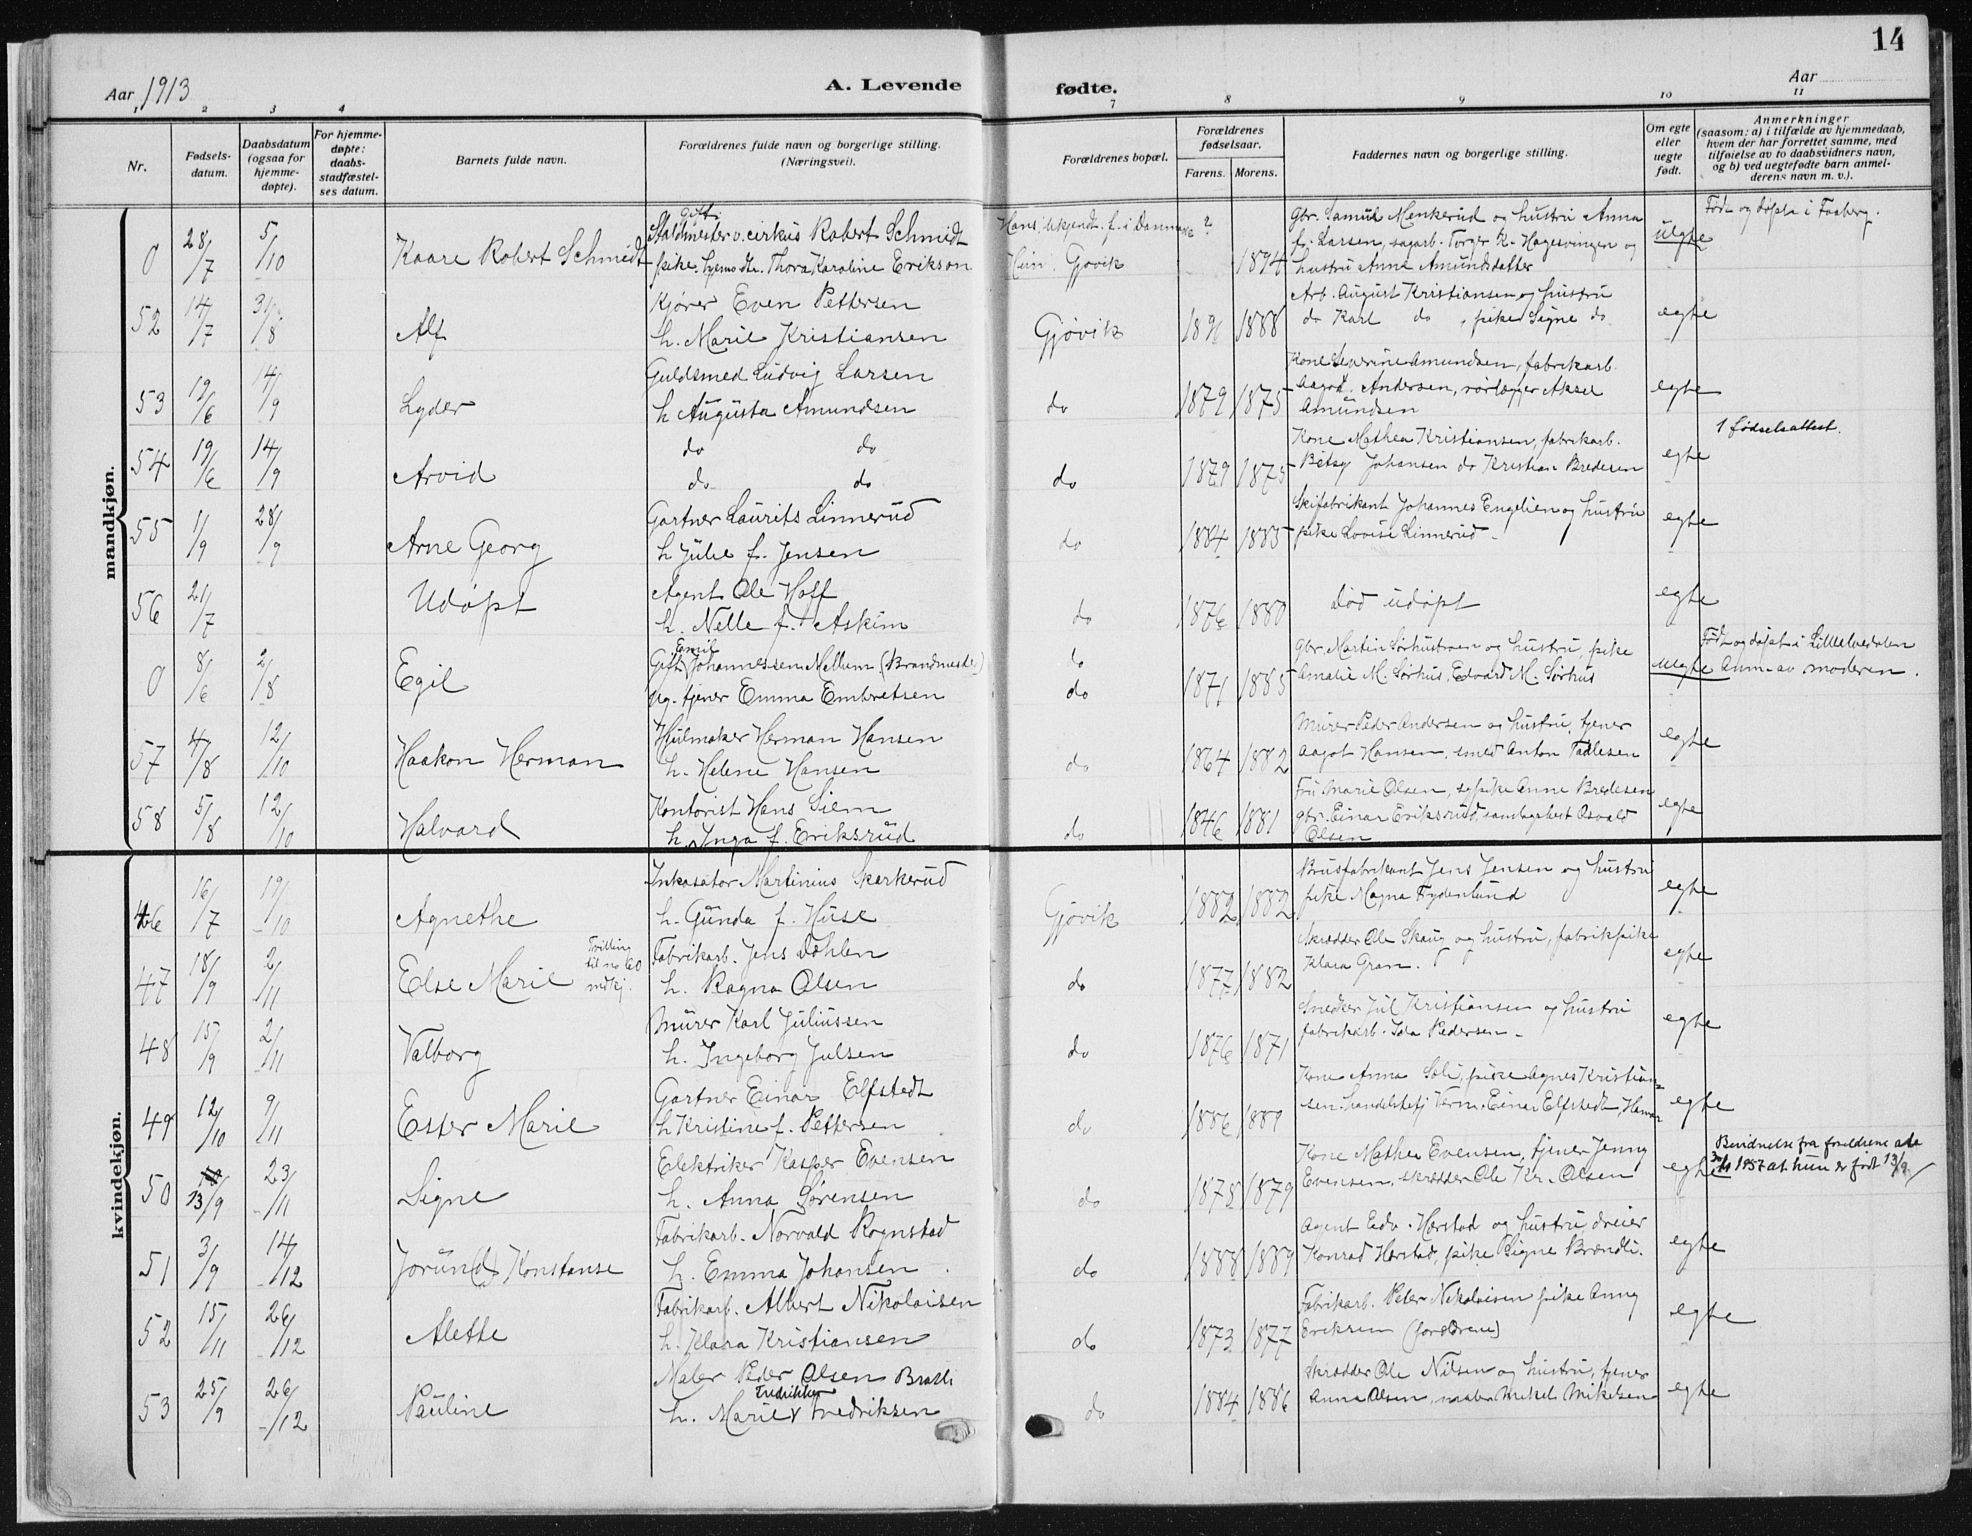 14
Aar 1913
A. Levende fødte.
Aar
1 2 3 4 7 8 9 10 11
Nr.
Fødsels-
datum.
Daabsdatum
(ogsaa for
hjemme-
døpte).
For hjemme-
døpte:
daabs-
stadfæstel-
ses datum.
Barnets fulde navn.
Forældrenes fulde navn og borgerlige stilling.
(Næringsvei).
Forældrenes bopæl.
Forældrenes
fødselsaar.
Farens. Morens.
Faddernes navn og borgerlige stilling.
Om egte
eller
uegte
født.
Anmerkninger
(saasom: a) i tilfælde av hjemmedaab,
hvem der har forrettet samme, med
tilføielse av to daabsvidners navn,
og b) ved uegtefødte barn anmel-
derens navn m. v.).
mandkjøn.
0 28/7 5/10 Kaare Robert Schmidt
gift.
Staldmester v. cirkus Robert Schmidt
pike. Thora Karoline Erikson
Hans: ubekjendt. f. i Danmark ?
Gjøvik 1894
Gbr. Samuel Menkerud og hustru Anna
f. Larsen, sagarb. Torger K. Hagesvingen og
hustru Anne Amundsdatter
uegte
Født og døpte i Faaberg.
52 14/7 31/8 Alf
Kjører Even Pettersen
h. Marie Kristiansen
Gjøvik 1888
Arb. August Kristiansen og hustru
do Karl do, pike Signe do
egte
53 19/6 14/9 Lyder
Guldsmed Ludvig Larsen
h Augusta Amundsen
do 1879 1875
Kone Severine Amundsen, fabrikarb.
Andersen, rørlægger Aksel
Amundsen
egte
54 19/6 14/9 Arvid
do do
do do
do 1879 1875
Kone Mathea Kristiansen, fabrikarb.
Betsy Johansen do Kristian Bredesen
egte
1 fødselsattest.
55 1/9 28/9 Arne Georg
Gartner Laurits Linnerud
h Julie f. Jensen
do 1884 1885
Skifabrikant Johannes Engelien og hustru
pike Lovise Linnerud -
egte
56 21/7 Udøpt
Agent Ole Hoff
h. Nelle f. Askim
do 1876 1880
død udøpt
egte
0 8/6 2/8 Egil
Emil
Gift Johannessen Mellum (Brandmester)
Ug. tjener Emma Embretsen
do
do 1871 1885
gbr. Martin Sørhustroen og hustru, pike
Amalie M. Sørhus, Edvard M. Sørhus
uegte
Født og døpt i Lilleelvedalen
Anm. av moderen.
57 4/8 12/10 Haakon Herman
Hjulmaker Herman Hansen
h. Helene Hansen
do 1864 1882
Murer Peder Andersen og hustru, tjener
Aagot Hansen, smed Anton
egte
58 5/8 12/10 Halvard
Kontorist Hans Siem
h. Inga f. Eriksrud
do 1846 1881
Fru Marie Olsen, Anne Bredesen
gbr. Einar Eriksrud, Osvald
Olsen
egte
kvindekjøn.
46 16/7 19/10 Agnethe
Inkasator Martinius Skarkerud
h. Gunda f. Huse
Gjøvik 1882 1882
Brusfabrikant Jens Jensen og hustru
pike Magna Frydenlund
egte
47 18/9 2/11 Else Marie
Tvilling
til no 60
mdkj.
Fabrikarb. Jens Dæhlen
h. Ragna Olsen
do 1877 1882
Skrædder Ole Skaug og hustru, fabrikpike
Klara Gran.
egte
48 15/9 2/11 Valborg
Murer Karl Juliussen
h. Ingeborg Julsen
do 1876 1871
Snedker Jul Kristiansen og hustru
fabrikarb. Ida Pedersen -
egte
49 12/10 9/11 Ester Marie
Gartner Einar Elfstedt
h Kristine f. Pettersen
do 1886 1889
Kone Anna Soli, pike Agnes Kristian-
sen, Einar Elfstedt,
egte
50 13/9 23/11 Signe
Elektriker Kasper Evensen
h. Anna Sørensen
do 1878 1879
Kone Mathea Evensen, tjener Jenny
Evensen, skrædder Ole Kr. Olsen
egte
Bevidnelse fra forældrene
1957 at hun er født 13/9.
51 3/9 14/12 Jørun(d) Konstanse
Fabrikarb. Norvald Rognstad
h. Emma Johansen
do 1888 1889
Agent Edv. Harstad og hustru, dreier
Konrad Harstad, pike Signe Brændli.
egte
52 15/11 26/12 Alette
Fabrikarb. Albert Nikolaisen
h. Klara Kristiansen
do 1873 1877
Fabrikarb. Peter Nikolaisen pike Anny
Eriksen (forældrene)
egte
53 25/9 26/12 Pauline
Maler Peder Olsen Brasli
Fredrikke
h. Marie v Fredriksen
do 1884 1886
Skrædder Ole Nilsen og hustru, tjener
Anna Olsen, maler Mikel Mikelsen
egte